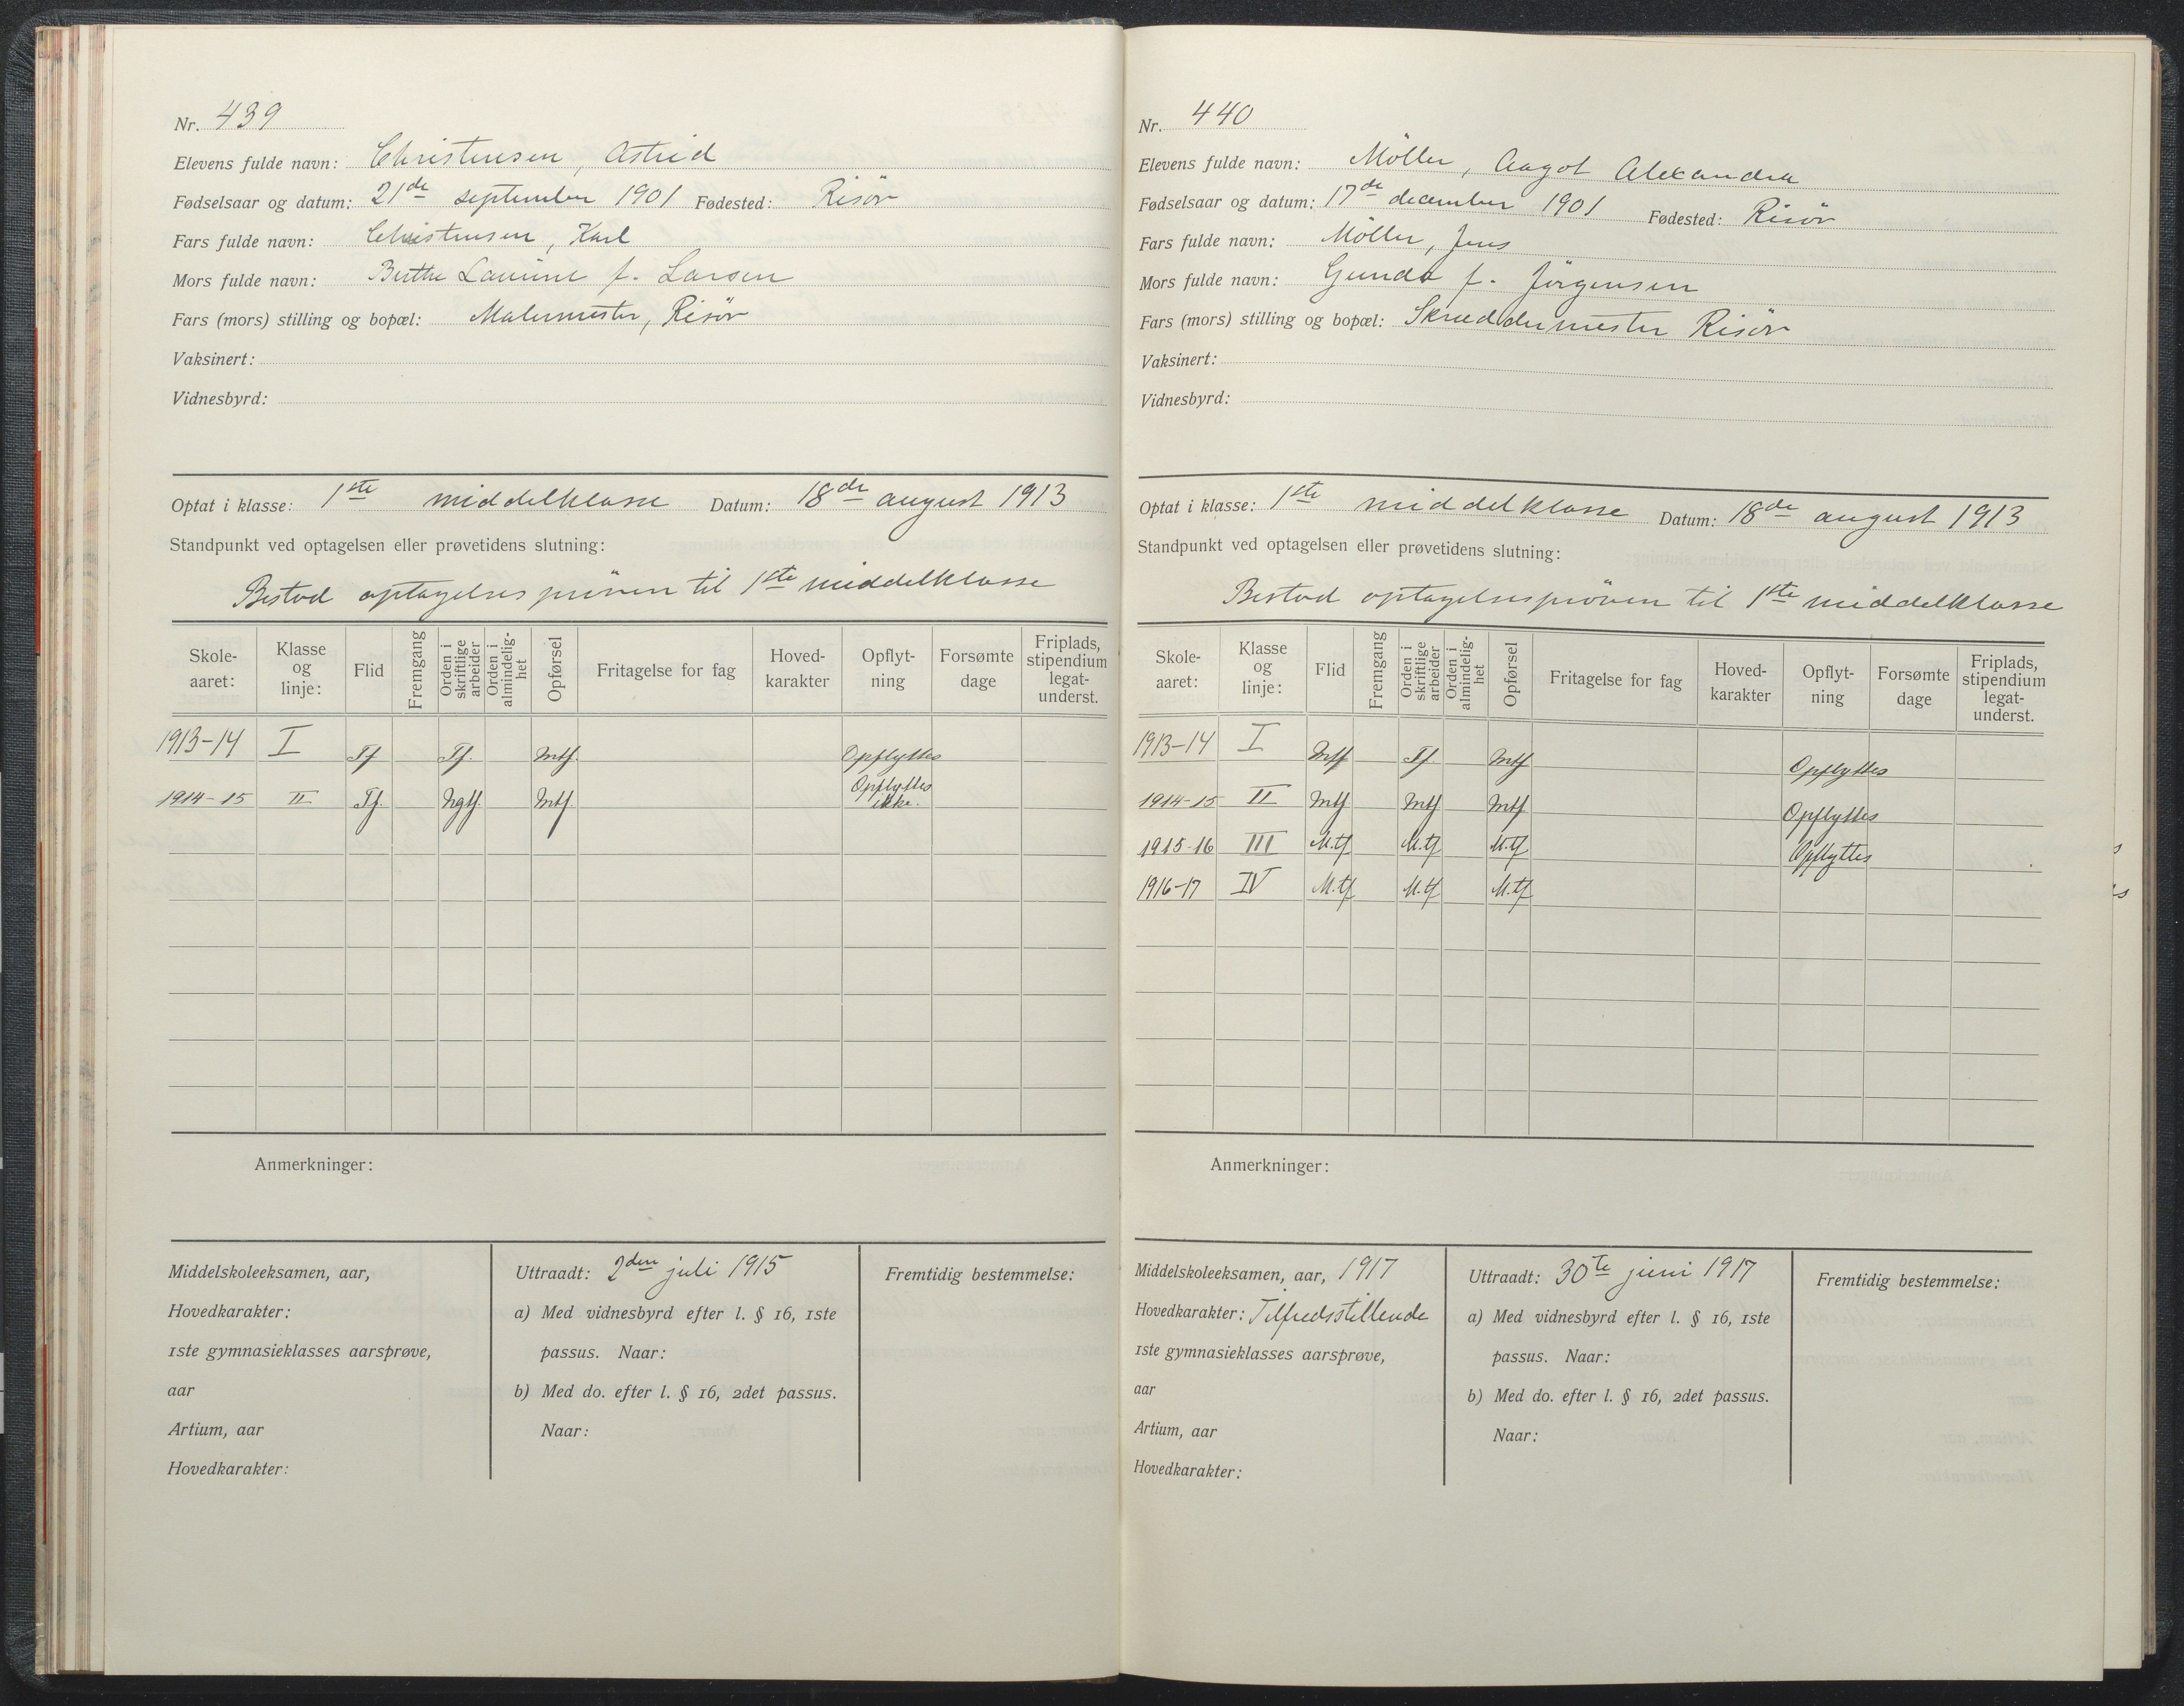 Nr. 439
Elevens fulde navn: Christensen, Astrid
Fødselsaar og datum: 21de september 1901 Fødested: Risör
Fars fulde navn: Christensen, Karl
Mors fulde navn: Berthe Laurine f. Larsen
Fars (mors) stilling og bopæl: Malermester, Risör
Vaksinert:
Vidnesbyrd:
Optat i klasse: 1ste middelklasse Datum: 18de august 1913
Standpunkt ved optagelsen eller prøvetidens slutning:
Bestod optagelsespröven til 1ste middelklasse
Skole-aaret: Klasse og linje: Flid Fremgang Orden i skriftlige arbeider Orden i almindelig-het Opførsel Fritagelse for fag Hoved-karakter Opflyt-ning Forsømte dage Friplads, stipendium legat-underst.
1913-14 I Tf. Tf. Mtf. Opflyttes
1914-15 II Tf. Ngtf. Mtf. Opflyttes ikke.
Anmerkninger:
Middelskoleeksamen, aar,
Hovedkarakter:
1ste gymnasieklasses aarsprøve,
aar
Artium, aar
Hovedkarakter:
Uttraadt: 2den juli 1915
a) Med vidnesbyrd efter l. § 16, 1ste
passus. Naar:
b) Med do. efter l. § 16, 2det passus.
Naar:
Fremtidig bestemmelse:
Nr. 440
Elevens fulde navn: Möller, Aagot Alexandra
Fødselsaar og datum: 17de december 1901 Fødested: Risör
Fars fulde navn: Möller, Jens
Mors fulde navn: Gunda f. Jörgensen
Fars (mors) stilling og bopæl: Skræddermester Risör
Vaksinert:
Vidnesbyrd:
Optat i klasse: 1ste middelklasse Datum: 18de august 1913
Standpunkt ved optagelsen eller prøvetidens slutning:
Bestod optagelsespröven til 1ste middelklasse
Skole-aaret: Klasse og linje: Flid Fremgang Orden i skriftlige arbeider Orden i almindelig-het Opførsel Fritagelse for fag Hoved-karakter Opflyt-ning Forsømte dage Friplads, stipendium legat-underst.
1913-14 I Mtf Tf. Mtf Opflyttes
1914-15 II Mtf Mtf Mtf Opflyttes
1915-16 III M.tf M.tf M.tf Opflyttes
1916-17 IV M.tf M.tf M.tf
Anmerkninger:
Middelskoleeksamen, aar, 1917
Hovedkarakter: Tilfredsstillende
1ste gymnasieklasses aarsprøve,
aar
Artium, aar
Hovedkarakter:
Uttraadt: 30te juni 1917
a) Med vidnesbyrd efter l. § 16, 1ste
passus. Naar:
b) Med do. efter l. § 16, 2det passus.
Naar:
Fremtidig bestemmelse: